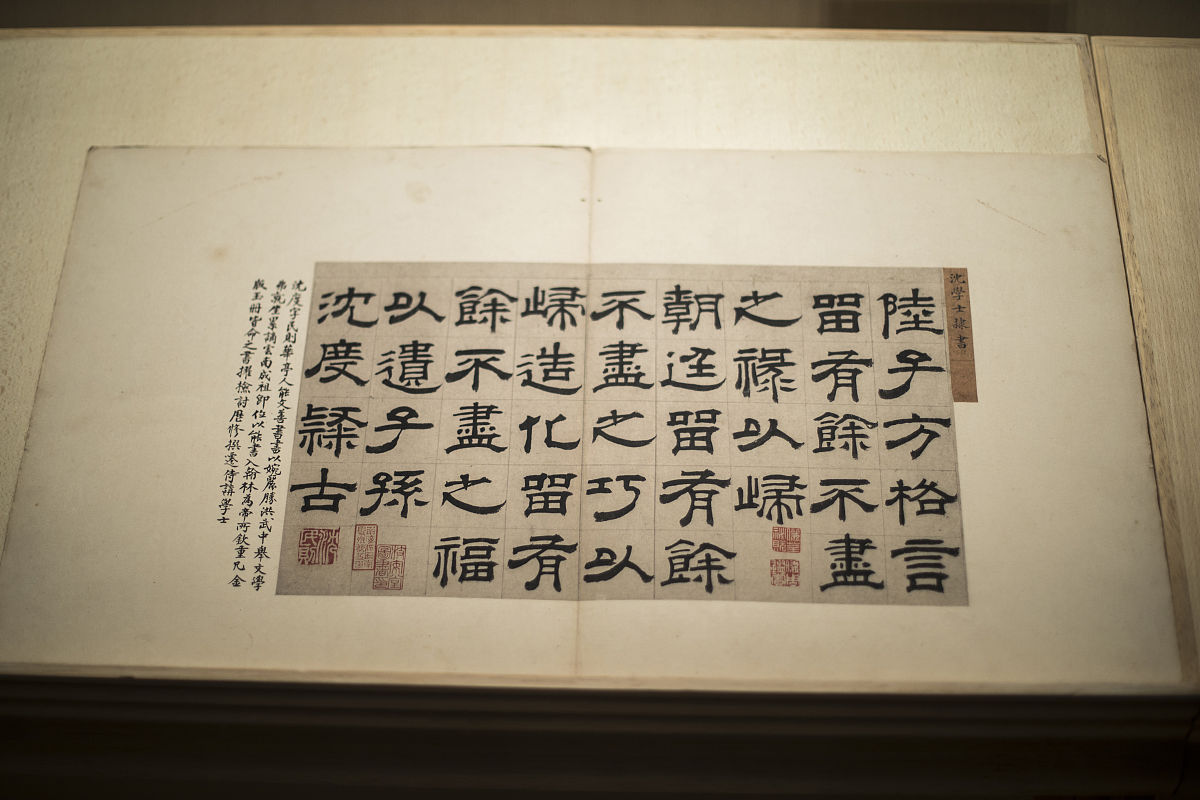 沈學士隸書
陸子方格言
畱有餘不盡
之祿以歸
朝廷畱有餘
不盡之巧以
歸造化畱有
餘不盡之福
以遺子孫
沈度隸古
沈民則
沈度字民則華亭人能文善書書以婉麗勝洪武中舉文學
弗就坐累謫雲南成祖即位以能書入翰林為帝所欽重凡金
版玉冊皆命之書擢檢討歷修撰遷侍講學士